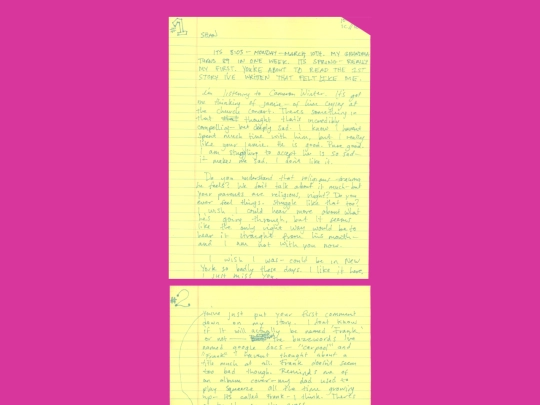 #1
SEAN)
ITS 8:05 - MONDAY - MARCH 10TH. MY GRANDMA
TURNS 89 IN ONE WEEK. ITS SPRING - REALLY
MY FIRST. YOU'RE ABOUT TO READ THE 1ST
STORY I'VE WRITTEN THAT FELT LIKE ME.
I'm listening to Winter. It's got
me thinking of - of him at
the church concert. There's something in
that thought that's incredibly
compelling - but deeply sad. I know I haven't
spent much time with him, but I really
like your . He is good. Pure good.
I am struggling to accept he is so sad -
it makes me sad. I don't like it.
Do you understand that religious
he feels? We don't talk about it much - but
your parents are religious, right? Do you
ever feel things, struggle like that too?
I wish I could hear more about what
he's going through, but it seems
like the only right way would be to
hear it straight from his mouth -
and I am not with you now.
I wish I was - could be in New
York so badly these days. I like it here,
I just miss you.
#2
You've just put your first comment
down on my story. I don't know
if it will actually be named Frank
or not - the I've
named google docs - " " and
"Frank" haven't thought about a
title much at all. Frank doesn't seem
too bad though. Reminds me of
an album cover - my dad used to
play Squeeze all the time growing
up - It's called frank - I think. That's